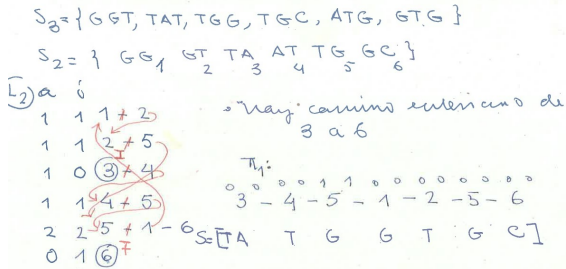 S3={GGT, TAT, TGG, TGC, ATG, GTG}
S2={ GG1 GT2 TA3 AT4 TG5 GC6}
L2) a ó
1 1 1+2
1 1 2+5
I
1 0 3+4
1 1 4+5
2 2 5+1-6
0 1 6 F
"Hay" camino euleriano de
3 a 6
π1:
0 0 0 0 1 1 0 0 0 0 0 0 0
3 - 4 - 5 - 1 - 2 - 5 - 6
S=[TA T G G T G C]